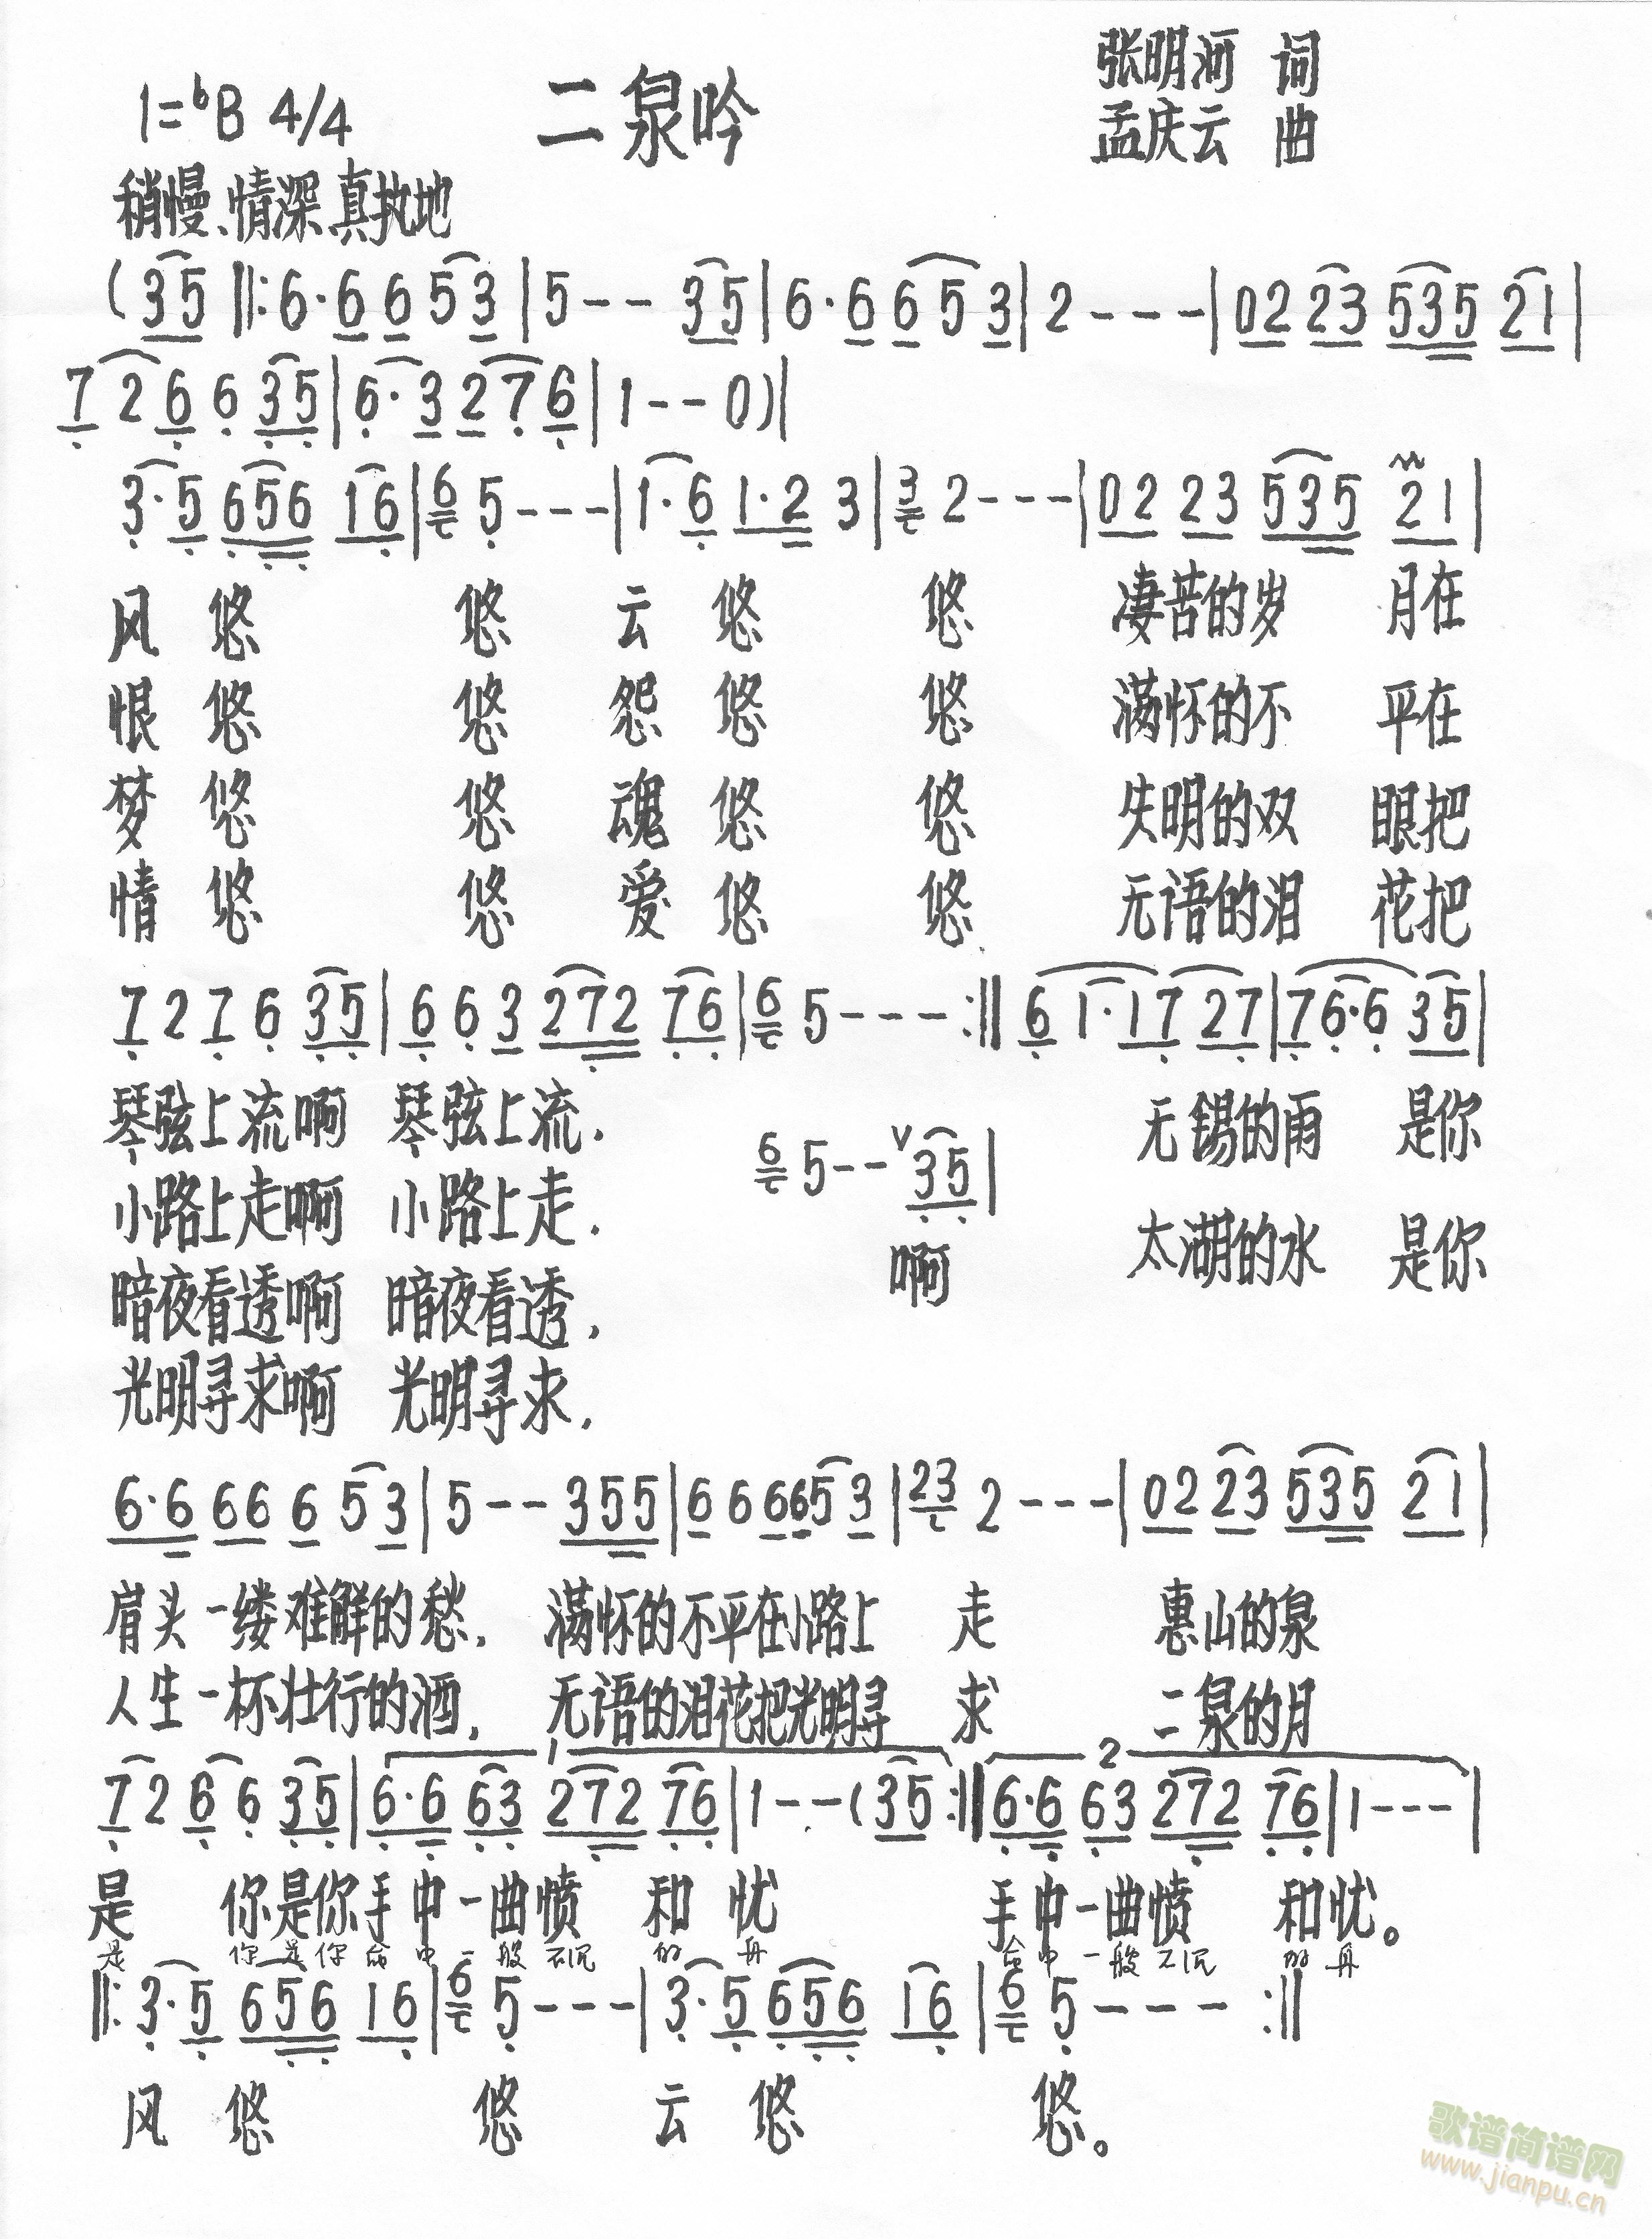 张明河 词
1=bB 4/4 二泉吟
孟庆云 曲
稍慢、情深、真执地
(35 ‖:6·6 6 5 3 | 5 - - 35 | 6·6 6 5 3 | 2 - - - | 02 23 535 21 |
7 2 6 6 35 | 6·3 2 7 6 | 1 - - 0) |
3·5 656 16 | 6 5 - - - | 1·6 1·2 3 | 3 2 - - - | 02 23 535 21 |
风 悠 悠 云 悠 悠 凄苦的岁 月在
恨 悠 悠 怨 悠 悠 满怀的不 平在
梦 悠 悠 魂 悠 悠 失明的双 眼把
情 悠 悠 爱 悠 悠 无语的泪 花把
7 2 7 6 35 | 6 6 3 272 76 | 6 5 - - - :‖ 6 1·17 27 | 76·6 35 |
琴弦上流啊 琴弦上流. 无锡的雨 是你
6 5 - - V 35 |
小路上走啊 小路上走. 啊 太湖的水 是你
暗夜看透啊 暗夜看透,
光明寻求啊 光明寻求.
6·6 66 6 5 3 | 5 - - 355 | 6 6 6653 | 23 2 - - - | 02 23 535 21 |
肩头一缕难解的愁, 满怀的不平在小路上 走 惠山的泉
人生一杯壮行的酒, 无语的泪花把光明寻 求 二泉的月
1 2
7 2 6 6 35 | 6·6 63 272 76 | 1 - - (35 :‖ 6·6 63 272 76 | 1 - - - |
是 你是你手中一曲愤 和 忧 手中一曲愤 和忧。
是 你是你 命中一般不沉 的 舟 命中一般不沉 的 舟
‖:3·5 656 16 | 6 5 - - - | 3·5 656 16 | 6 5 - - - :‖
风 悠 悠 云 悠 悠。
歌谱简谱网
www.jianpu.cn